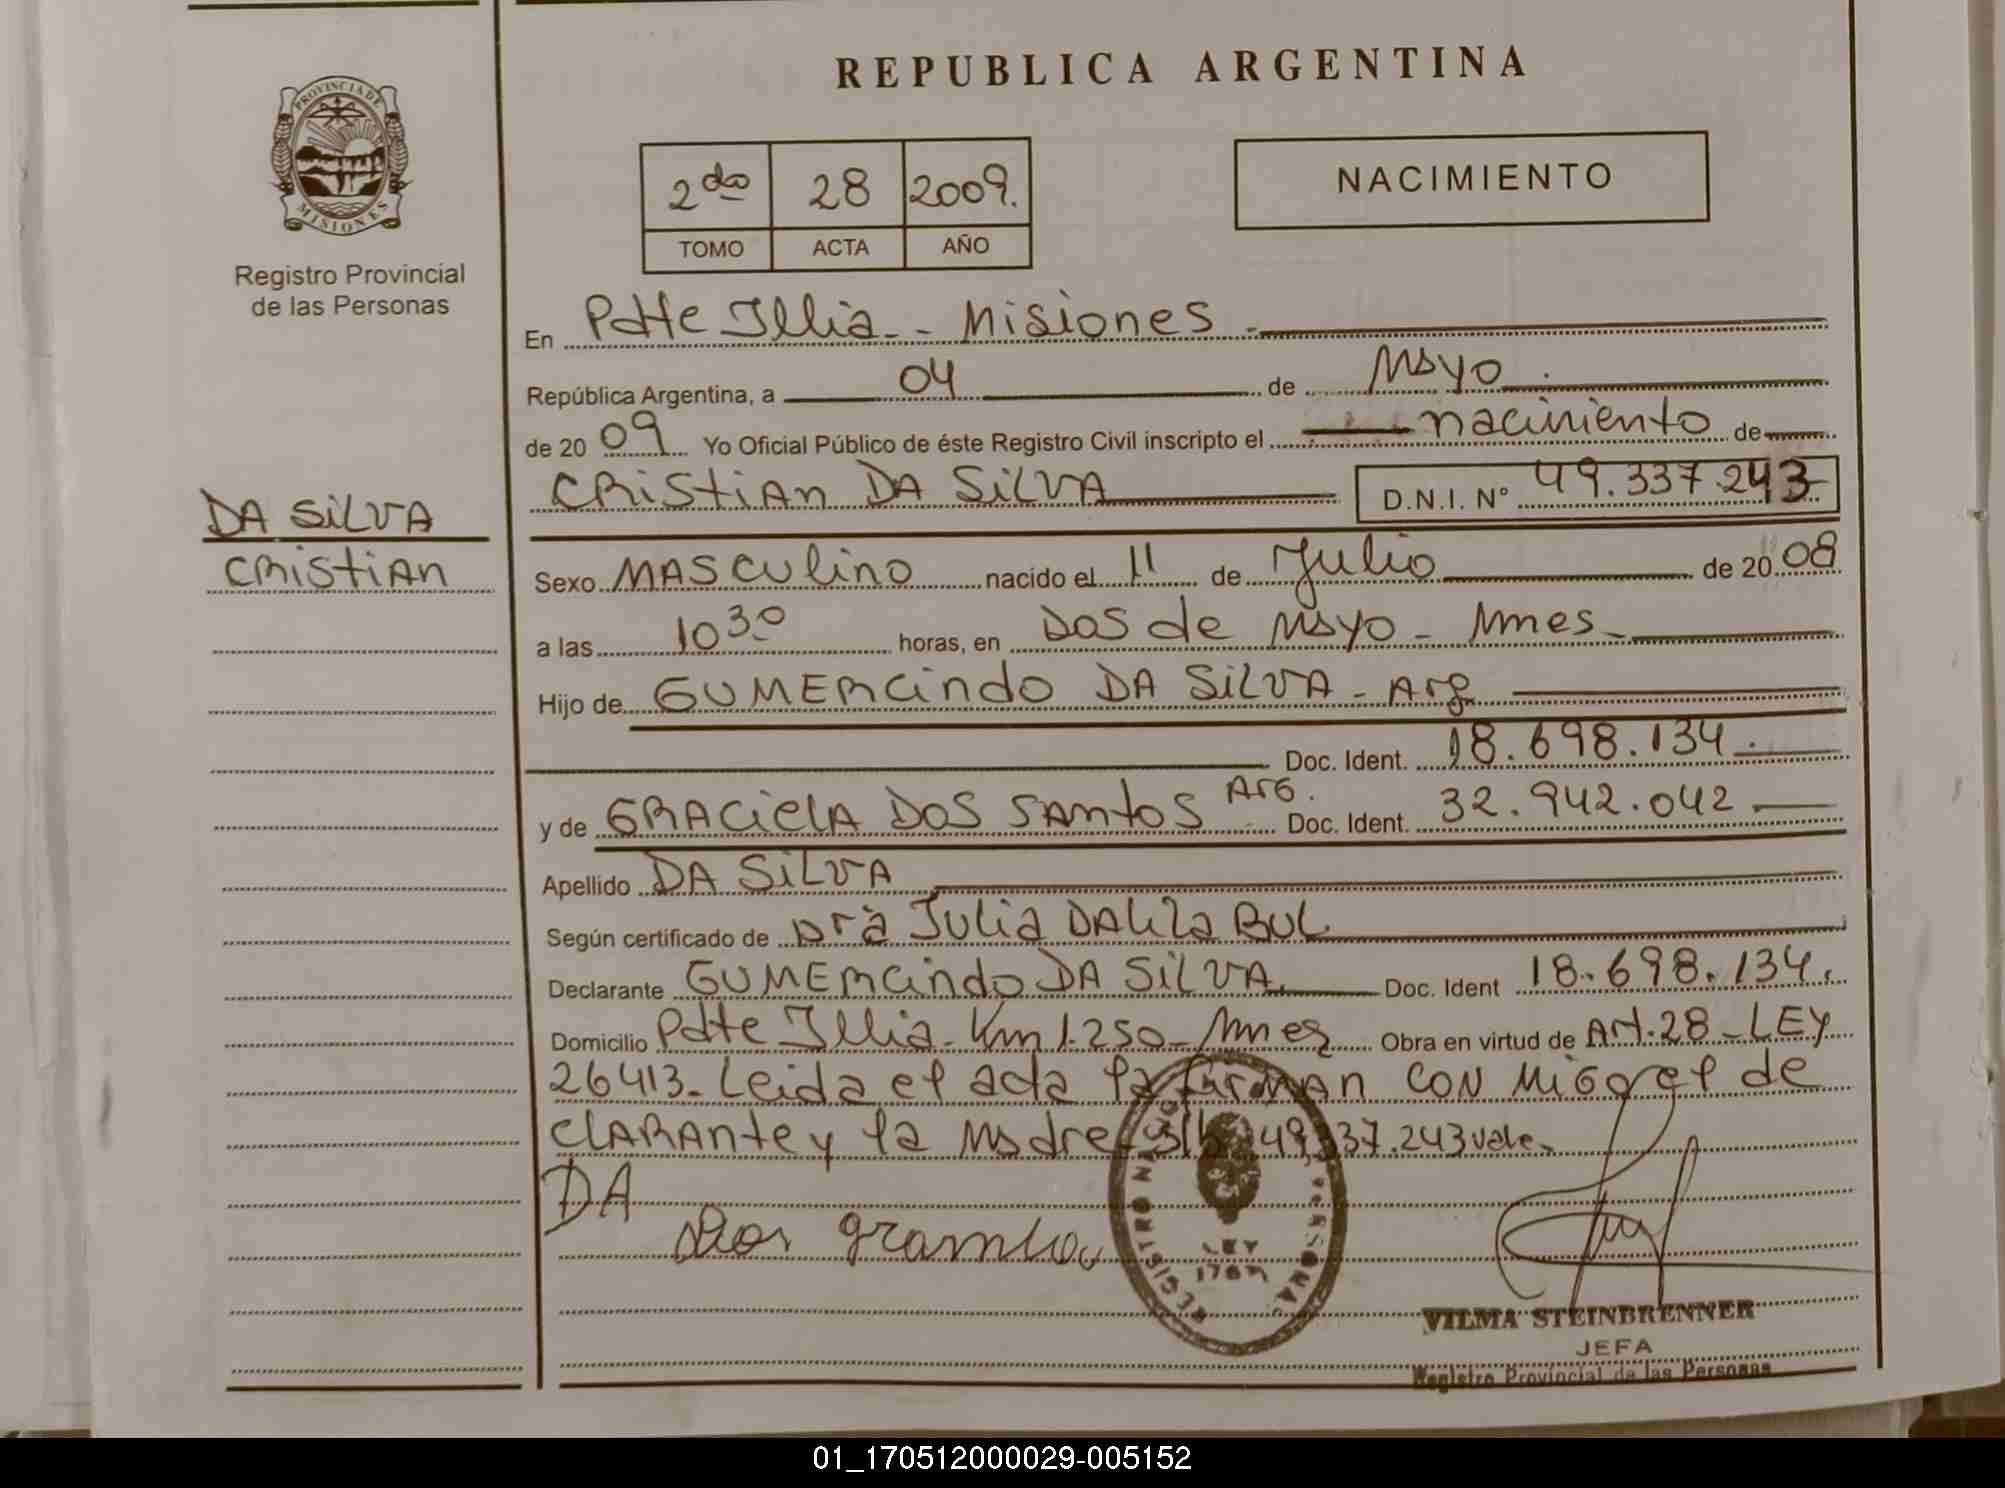 REPUBLICA ARGENTINA
PROVINCIA DE MISIONES
Registro Provincial
de las Personas
2do 28 2009.
TOMO ACTA AÑO
NACIMIENTO
DA SILVA
CRISTIAN
En Pdte Illia - Misiones -
República Argentina, a 04 de Mayo
de 2009 Yo Oficial Público de éste Registro Civil inscripto el nacimiento de
CRISTIAN DA SILVA D.N.I. N° 49.337.243
Sexo MASCULINO nacido el 11 de Julio de 2008
a las 10 30 horas, en Dos de Mayo - Mnes -
Hijo de GUMERCINDO DA SILVA - Arg
Doc. Ident. 18.698.134
y de GRACIELA DOS SANTOS Arg. Doc. Ident. 32.942.042
Apellido DA SILVA
Según certificado de Dra Julia DALILA BUL
Declarante GUMERCINDO DA SILVA Doc. Ident 18.698.134.
Domicilio Pdte Illia - Km 1.250 - Mnes Obra en virtud de Art. 28 - LEY
26413 - Leida el acta la firman CON Migo el de
CLARANTE y la Madre - S/b 49.337.243 vale -
DA
Dos
REGISTRO NACIO PERSONA
LEY
1767
VILMA STEINBRENNER
JEFA
Registro Provincial de las Personas
01_170512000029-005152